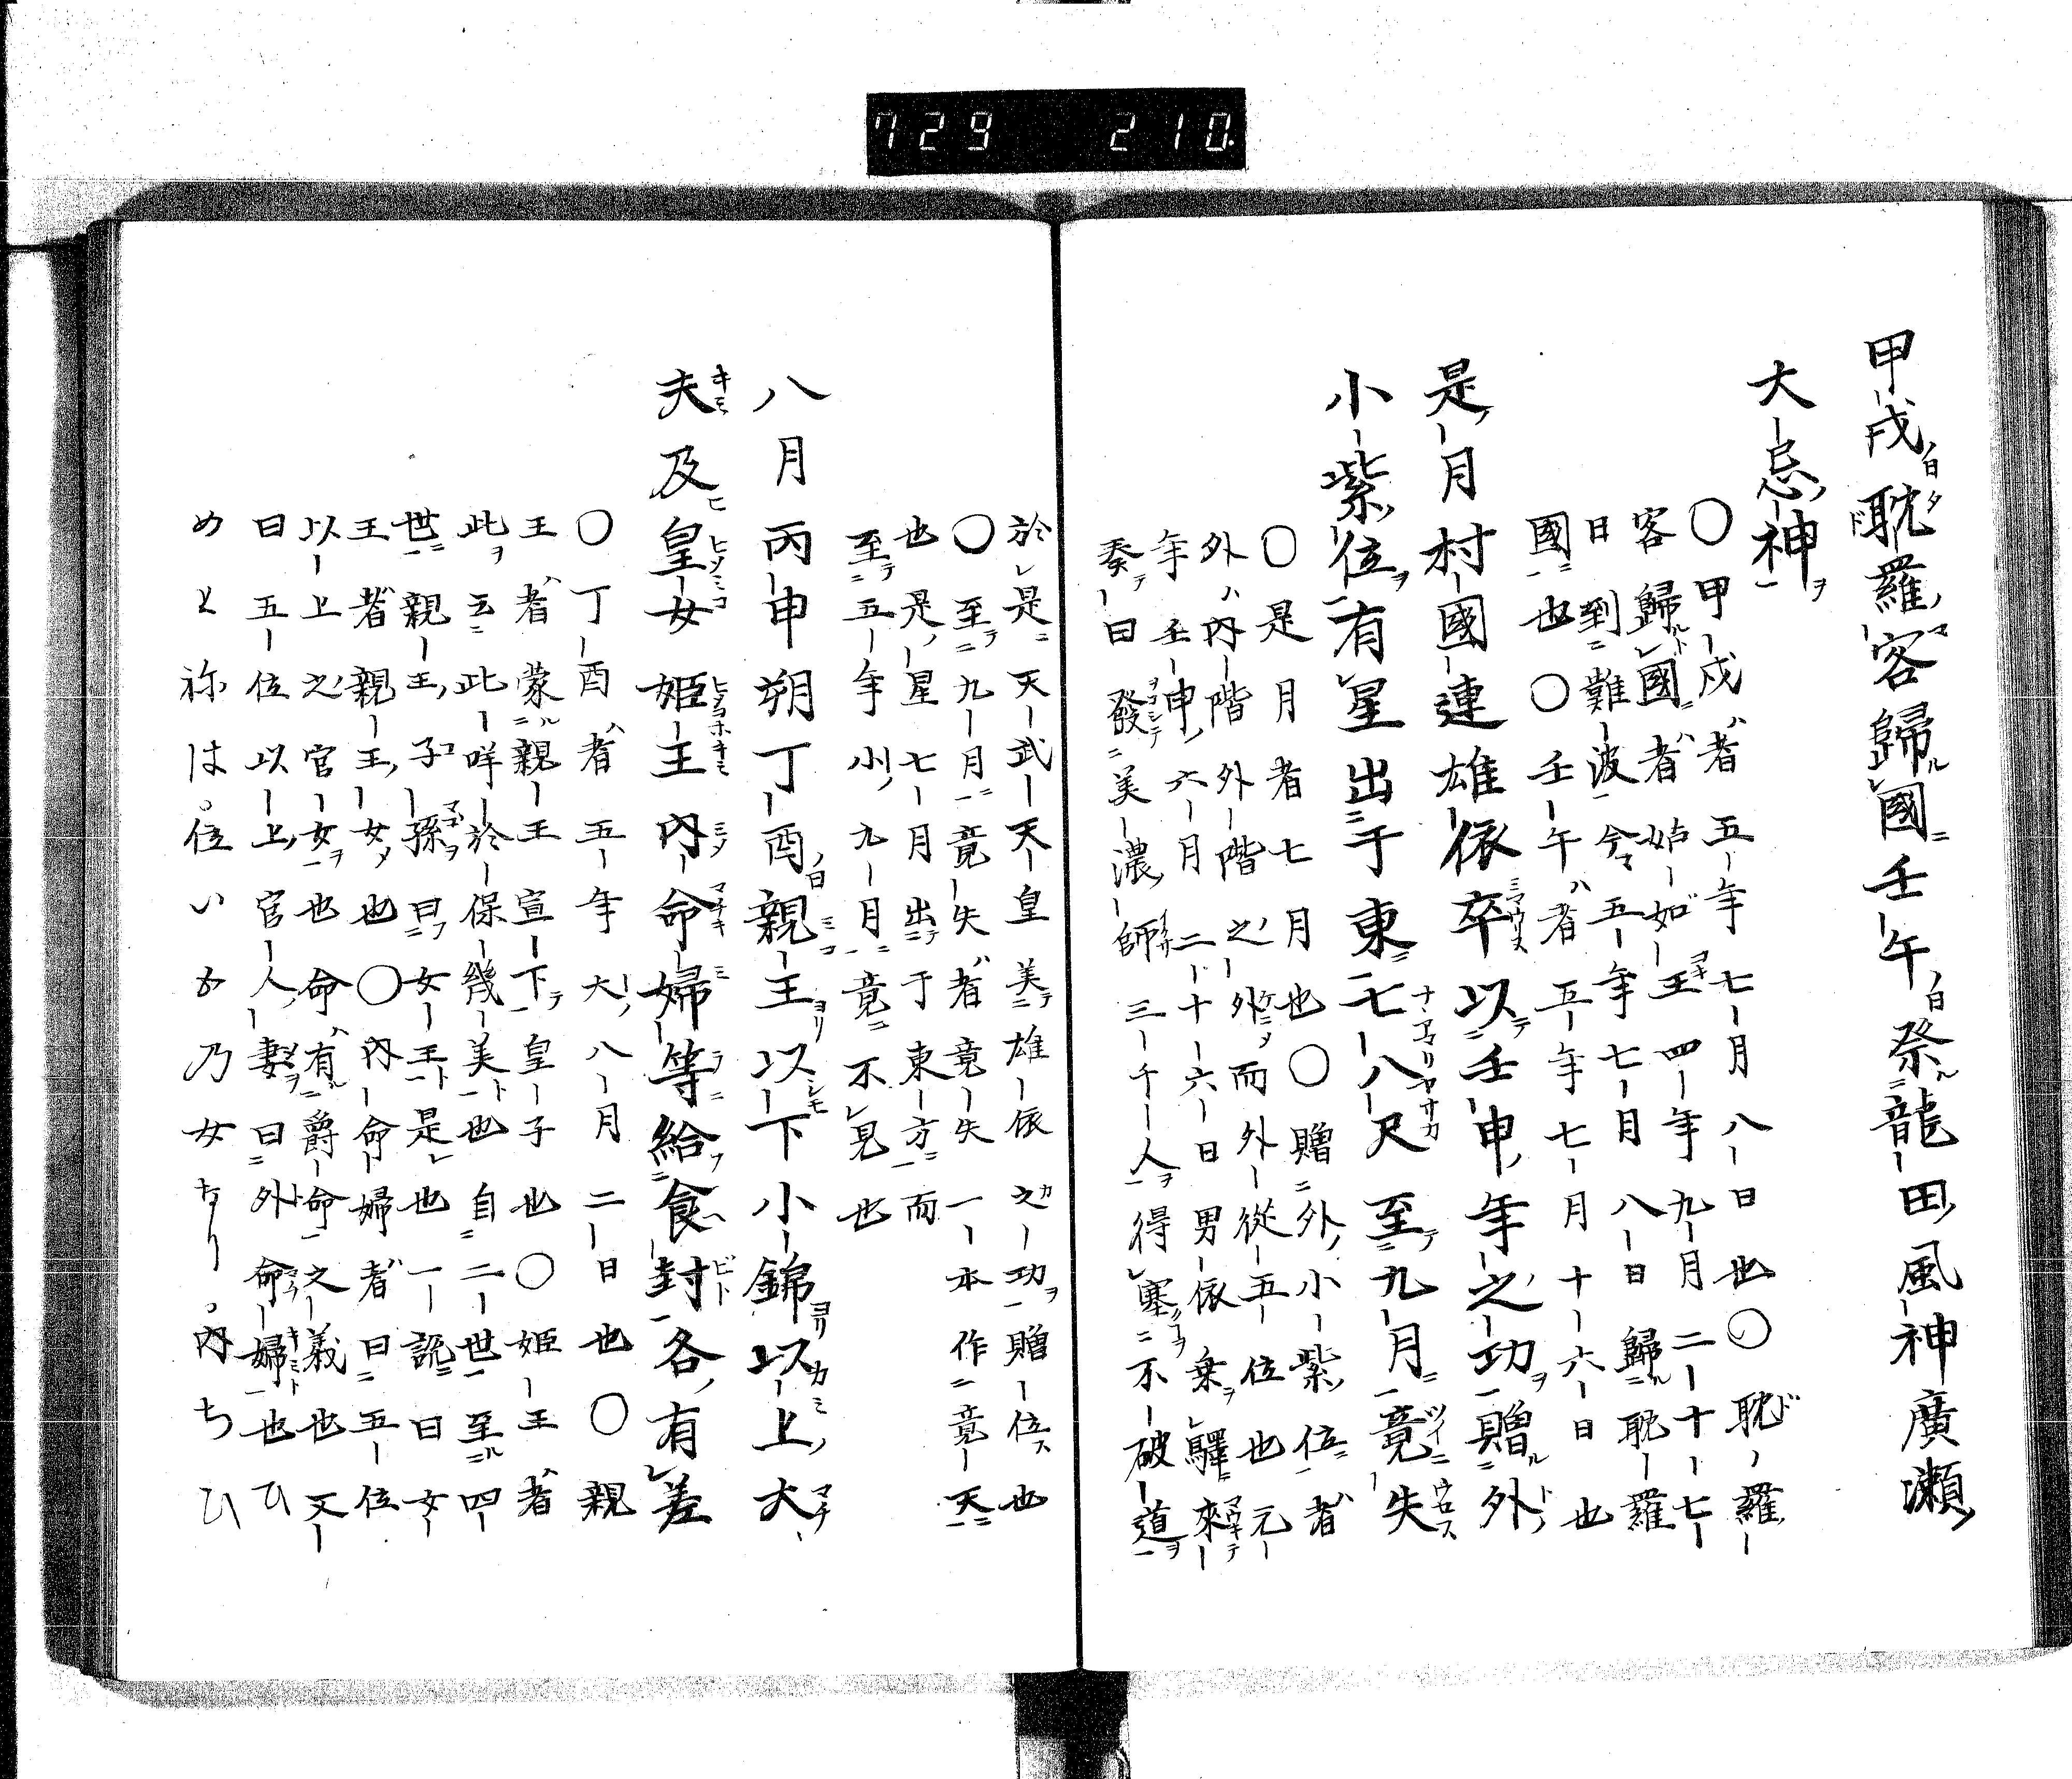 729 210.
甲戌耽羅客歸國壬午祭龍田風神廣瀬
大忌神
〇甲戌者五年七月八日也〇耽羅
客歸國者始如王四年九月二十七
日到難波今五年七月八日歸耽羅
國也〇壬午者五年七月十六日也
是月村國連雄依卒以壬申年之功贈外
小紫位有星出于東七八尺至九月竟失
〇是月者七月也〇贈外小紫位者
外内階外階之外而外從五位也元
年壬申六月二十六日男依乗驛來
奏曰發美濃師三千人得塞不破道
於是天武天皇美雄依之功贈位也
〇至九月竟失者竟失一本作竟天
也是星七月出于東方而
至五年小九月竟不見也
八月丙申朔丁酉親王以下小錦以上大
夫及皇女姫王内命婦等給食封各有差
〇丁酉者五年大八月二日也〇親
王者蒙親王宣下皇子也〇姫王者
此云此咩於保幾美也自二世至四
世親王子孫曰女王是也一説曰女
王者親王女也〇内命婦者曰五位
以上之官女也命有爵命之義也又
曰五位以上官人妻曰外命婦也ひ
めと祢は位いお乃女なり内ちひ